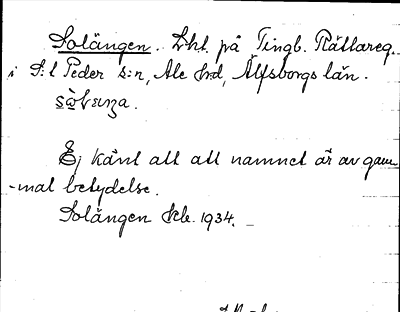 Solängen. Lht. på Tingb. Rättareg.
i S:t Peder s:n, Ale hd, Älfsborgs län.
Ej känt att att namnet är av gam-
-mal betydelse.
Solängen Jrb. 1934.